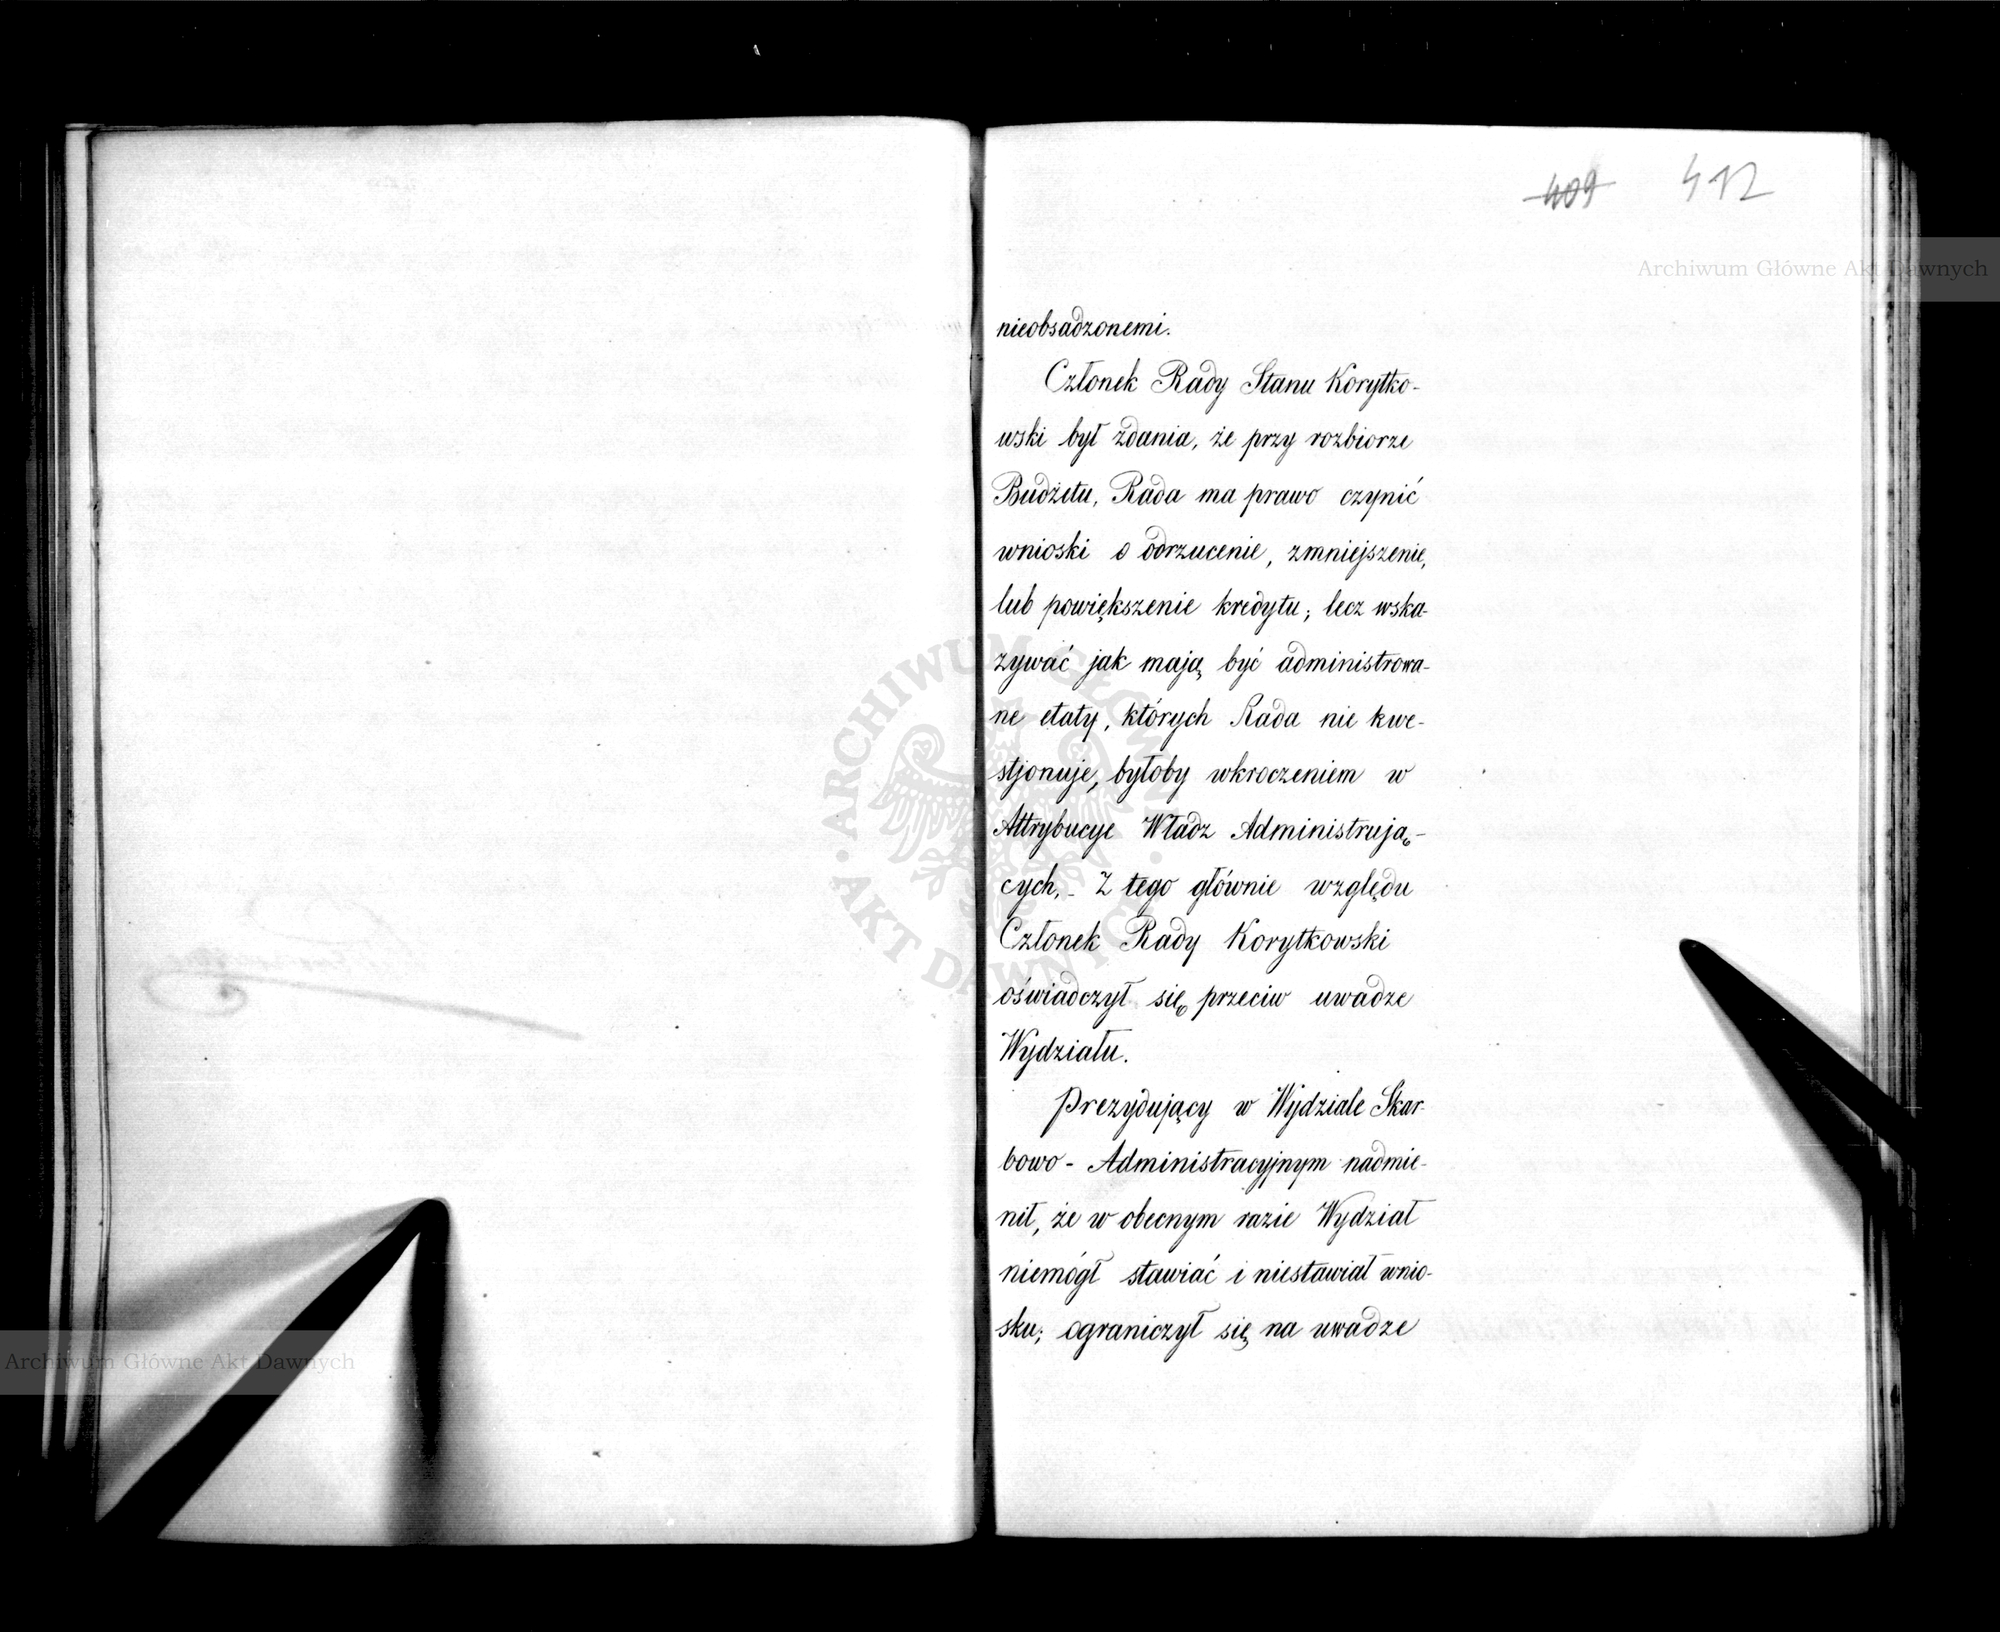 409 412
Archiwum Główne Akt Dawnych
nieobsadzonemi.
Członek Rady Stanu Korytko-
wski był zdania, że przy rozbiorze
Budżetu, Rada ma prawo czynić
wnioski o odrzucenie, zmniejszenie,
lub powiększenie kredytu; lecz wska-
zywać jak mają być administrowa-
ne etaty, których Rada nie kwe-
stjonuje, byłoby wkroczeniem w
Attrybucye Władz Administrują-
cych. - Z tego głównie względu
Członek Rady Korytkowski
oświadczył się przeciw uwadze
Wydziału.
Prezydujący w Wydziale Skar-
bowo - Administracyjnym nadmie-
nił, że w obecnym razie Wydział
niemógł stawiać i niestawiał wnio-
sku; ograniczył się na uwadze
ARCHIWUM GŁÓWNE
AKT DAWNYCH
Archiwum Główne Akt Dawnych